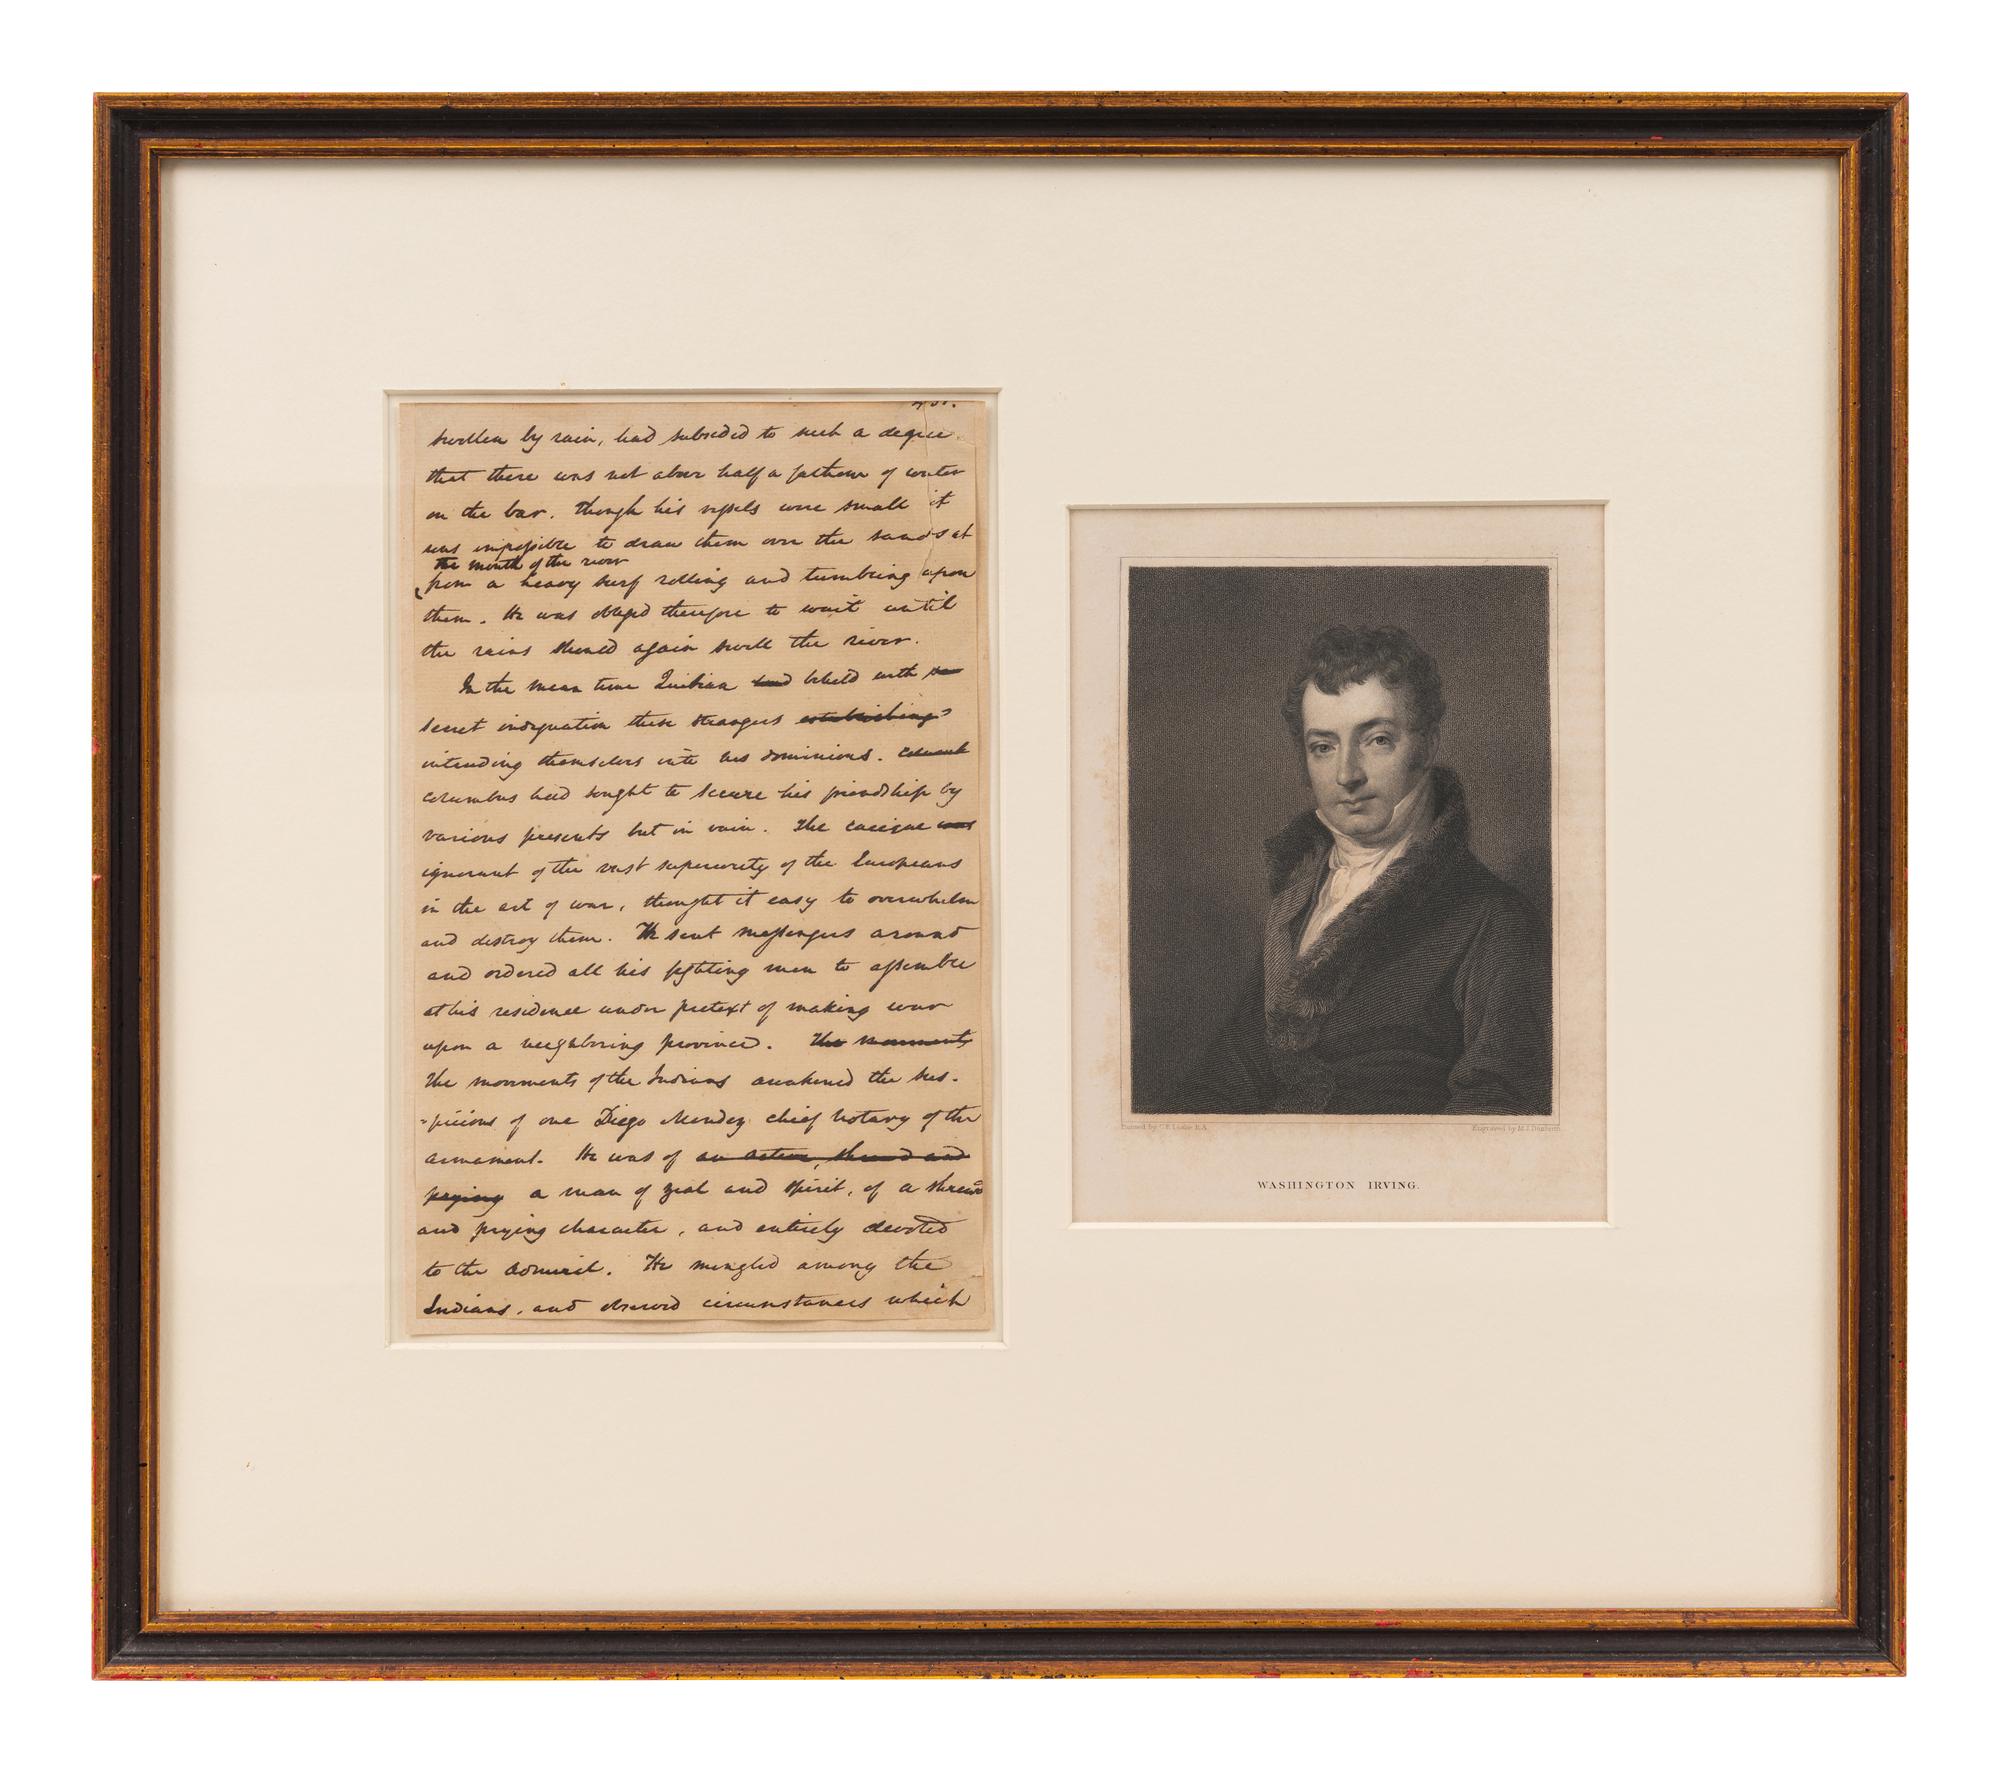 swollen by rain, had subsided to such a degree
that there was not above half a fathom of water
on the bar. Though his vessels were small it
was impossible to draw them over the sands at
the mouth of the river
from a heavy surf rolling and tumbling upon
them. He was obliged therefore to wait until
the rains should again swell the river.
In the mean time Quibian had beheld with
secret indignation these strangers establishing
intruding themselves into his dominions.
Columbus had sought to secure his friendship by
various presents but in vain. The cacique was
ignorant of the vast superiority of the Europeans
in the art of war, thought it easy to overwhelm
and destroy them. He sent messengers around
and ordered all his fighting men to assemble
at his residence under pretext of making war
upon a neighboring province. The movements
The movements of the Indians awakened the sus-
-picions of one Diego Mendez chief notary of the
armament. He was of an active, shrewd and
prying a man of zeal and spirit, of a shrewd
and prying character, and entirely devoted
to the admiral. He mingled among the
Indians, and observed circumstances which
Painted by C.R. Leslie R.A. Engraved by M.I. Danforth
WASHINGTON IRVING.